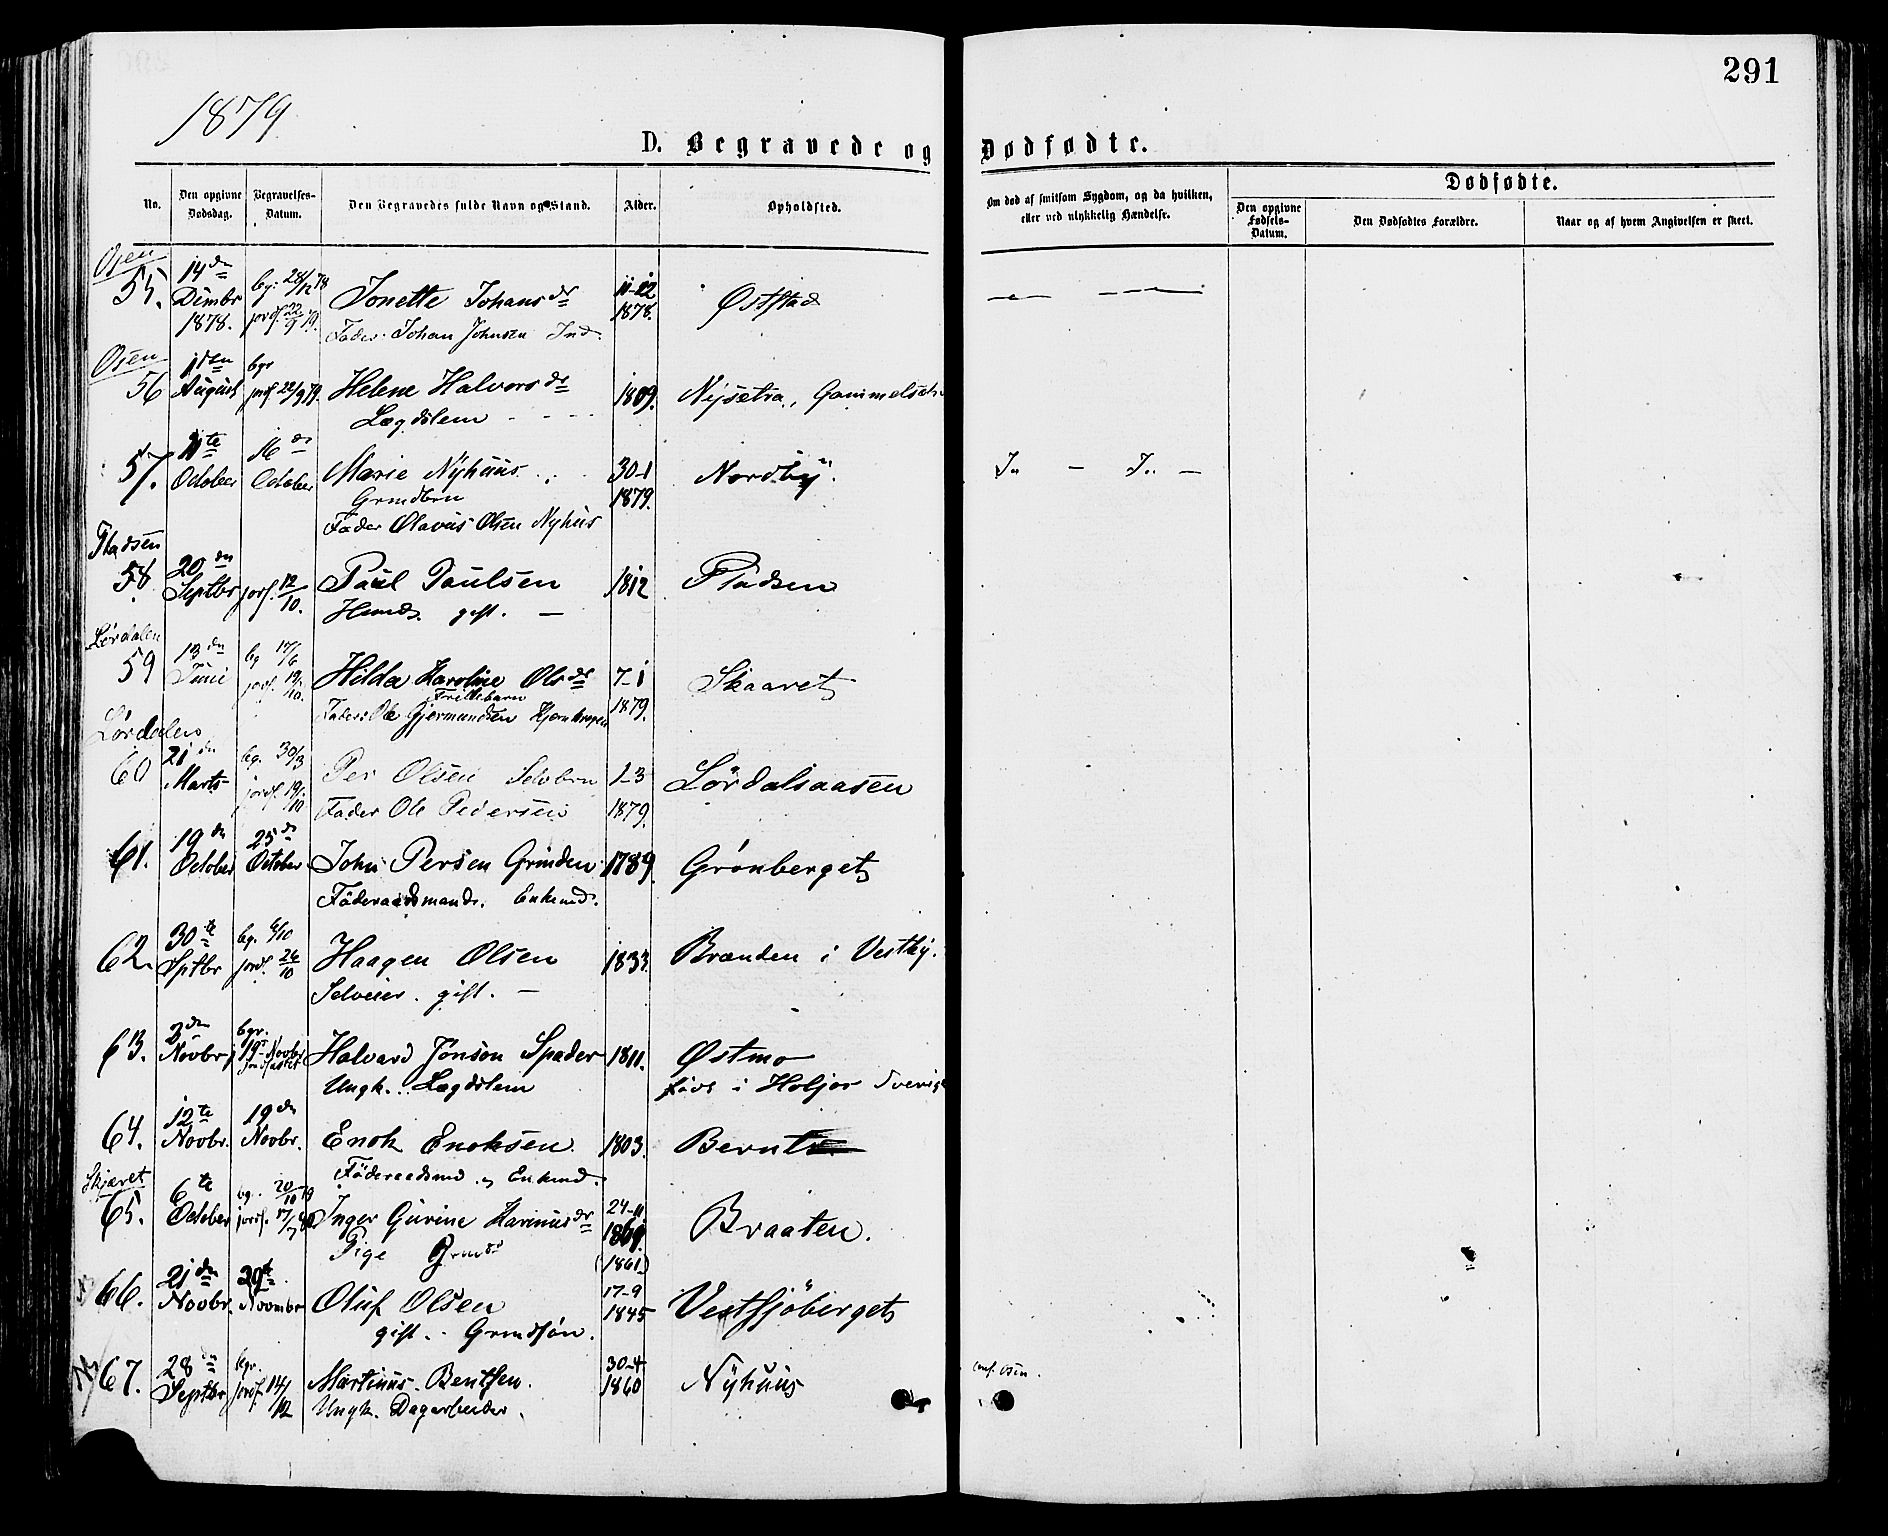 291
1879
D. Begravede og Dødfødte.
No.
Den opgivne Dødsdag.
Begravelses-Datum.
Den Begravedes fulde Navn og Stand.
Alder.
Opholdsted.
Om død af smitsom Sygdom, og da hvilken, eller ved ulykkelig Hændelse.
Dødfødte.
Den opgivne Fødsels-Datum.
Den Dødfødtes Forældre.
Naar og af hvem Angivelsen er skeet.
Osen
55. 14de Dcmbr 1878. bg: 28/12 78 jordf. 22/9 79. Jonette Johansdr 11-12 1878. Øststad
Fader: Johan Johnsen Ind.
Osen
56 1ste August bgr jordf 22/9 79. Helene Halvorsdr 1809. Nysætra, Gammelsæt
Lægdslem
57. 11te October 16de October Marie Nyhuus 30-1 1879. Nordby.
Grmdbrn
Fader Olavus Olsen Nyhus
Pladsen
58 20de Septbr jorf. 12/10. Paul Paulsen 1812 Pladsen
Husmd. gift.
Lørdalen
59 13de Juni bg 17/6 jorf. 19/10. Hilda Karoline Olsdr 7-1 1879. Skaaret
Frillebarn
Fader: Ole Gjermundsen
Lørdalen
60 21de Marts bg. 30/3 jordf. 19/10 Per Olsen Selvbrn 1-3 1879. Lördalsaasen
Fader Ole Pedersen
61. 19de October 25de October John Persen Grinden 1789. Grønberget
Föderaadsmand. Enkemd.
62. 30te Sptbr bg. 6/10 jordf. 26/10 Haagen Olsen 1833. Brænden i Vestby.
Selveier. gift.
63. 3de Novbr bgr. 19de Novbr Halvard Jonson Spader 1811. Østmo
Ungk. Lægdslem født i Holjor Sverige
64. 12te Novbr. 19de Novbr. Enok Enoksen 1803. Bernt
Föderaadsmd og Enkemd.
Skjæret
65. 6te October bg. 20/10 79 jordf. 17/7 80 Inger Gurine Karinusdr 24-11 1861. Braaten.
Pige Grmd (1861)
66. 21de Novbr. 29de Novmbr Oluf Olsen 17-9 1845 Vestsjöberget
gift. Grmdsøn.
67. 28de Septbr bgr. jordf. 14/12 Martinus Bentsen. 30-4 1860 Nyhuus
Ungk. Dagarbeider.